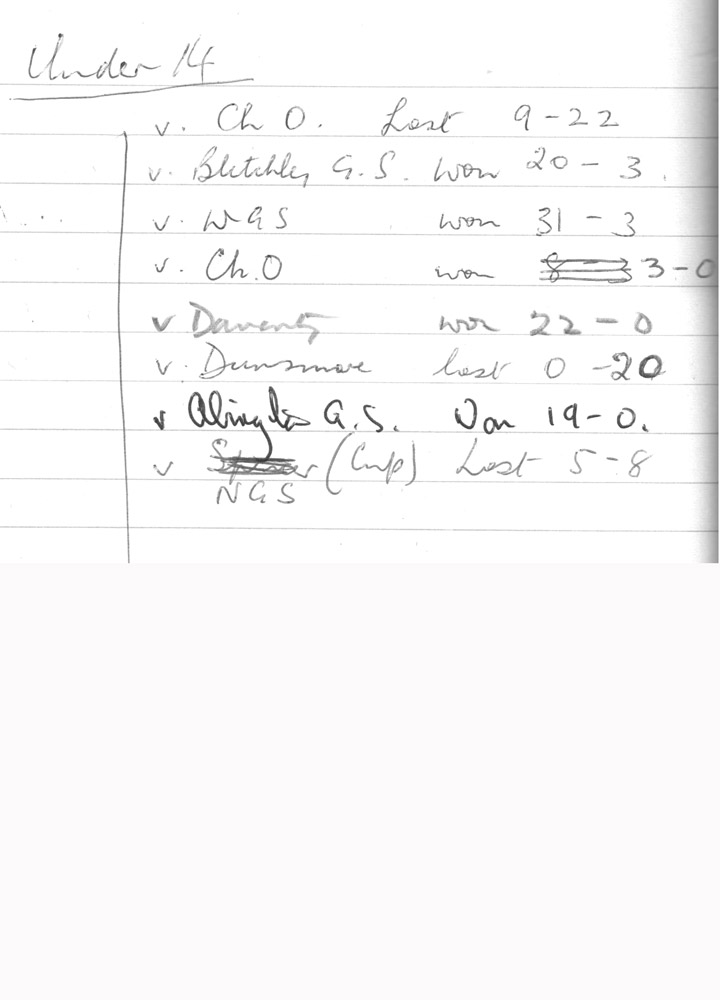 Under 14
v. Ch O. Lost 9-22
v. Bletchley G.S. won 20-3.
v. WGS won 31-3
v. Ch.O won 3-0
v Daventry won 22-0
v. Dunsmore lost 0-20
v Abington G.S. Won 19-0.
v (Cup) Lost 5-8
NGS